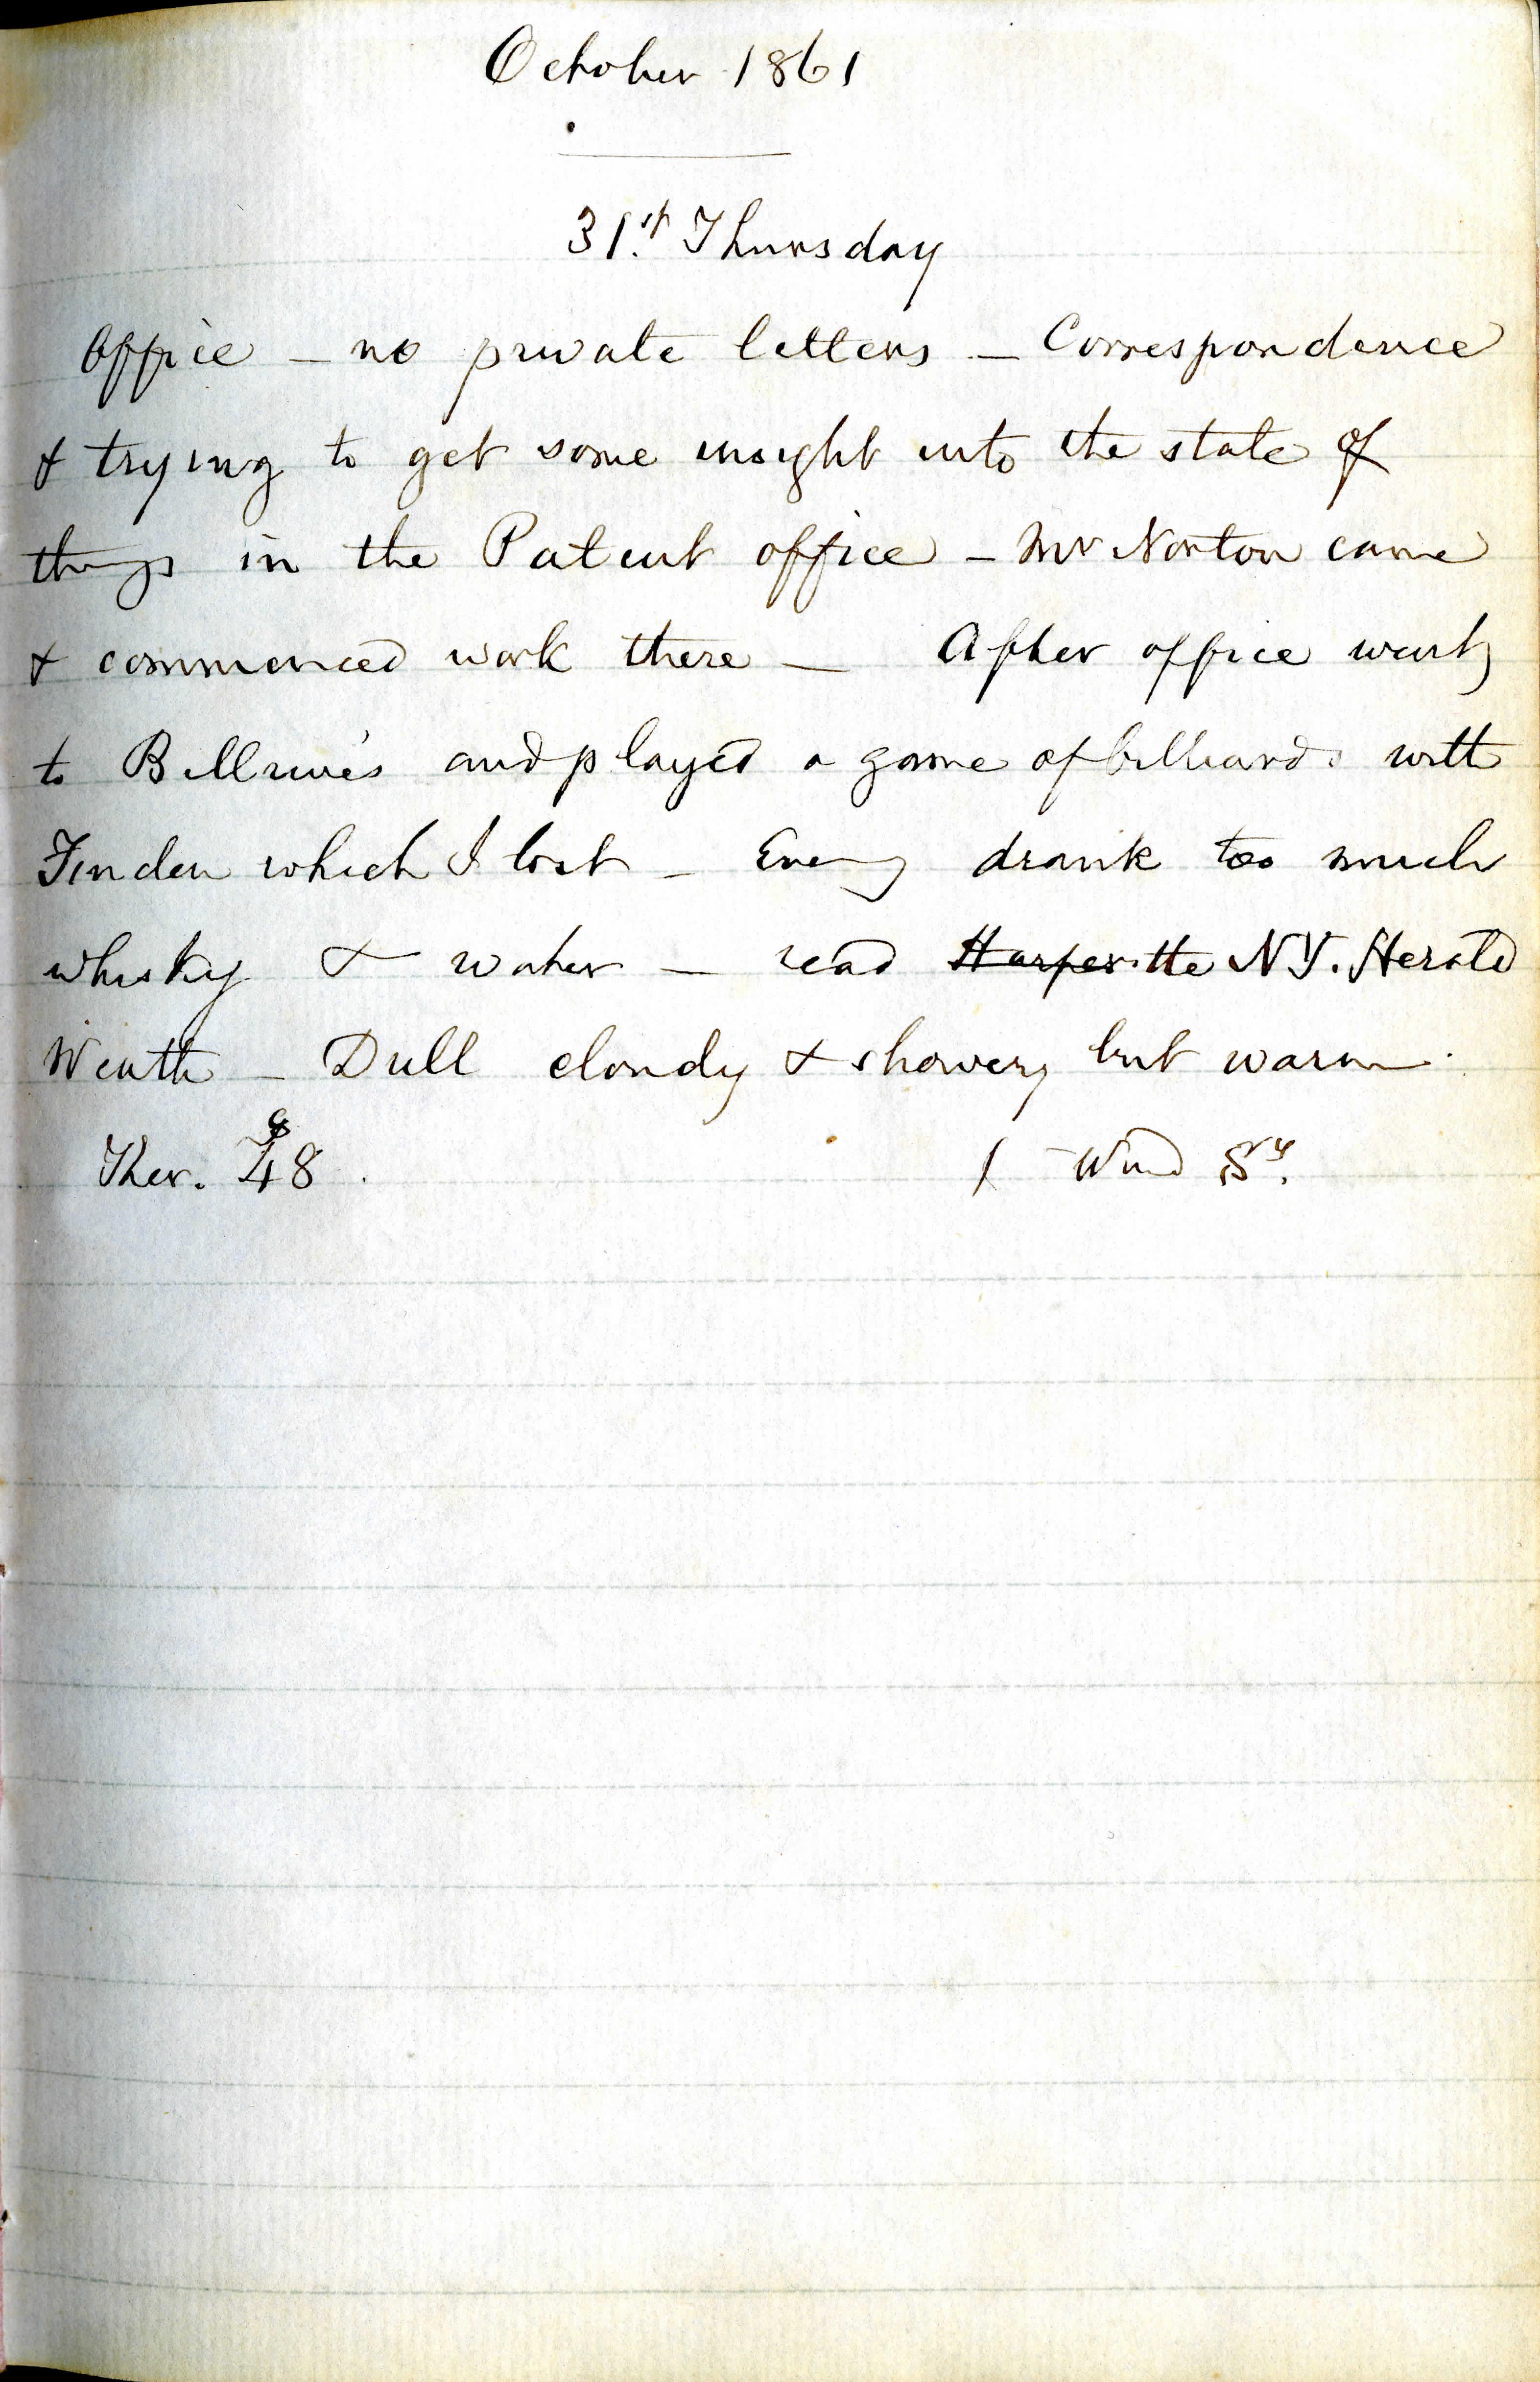 October 1861
31.st Thursday
Office – no private letters – Correspondence
& trying to get some insight into the state of
things in the Patent office – Mr Norton came
& commenced work there – After office went
to and played a game of billiards with
which I lost – Eveng drank too much
whisky & water – read Harper the N.Y. Herald
Weath – Dull cloudy & showery but warm.
Ther. 48 . / Wind Sy.